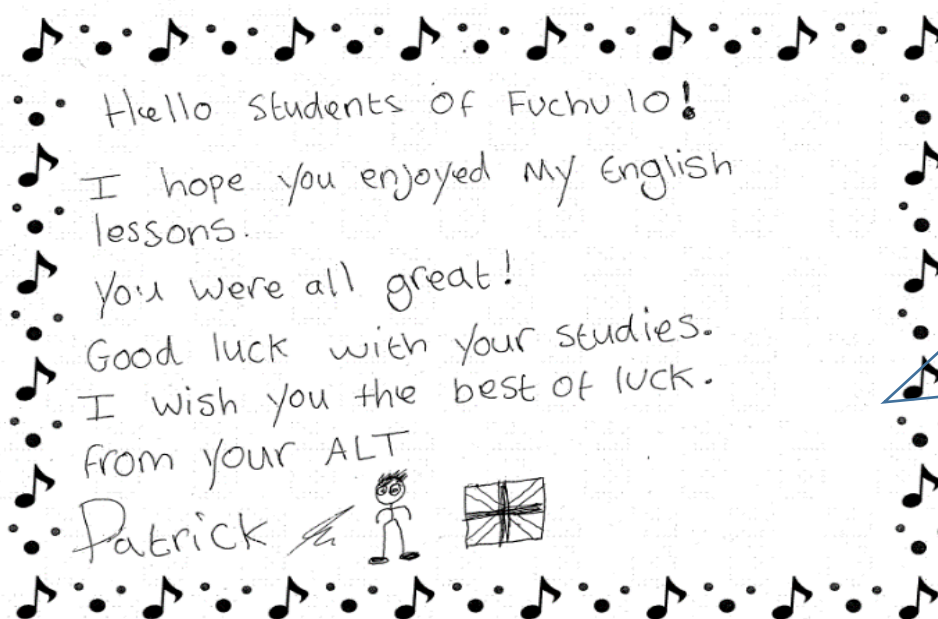 Hello students of Fuchu 10!
I hope you enjoyed my English
lessons.
You were all great!
Good luck with your studies.
I wish you the best of luck.
from your ALT
Patrick